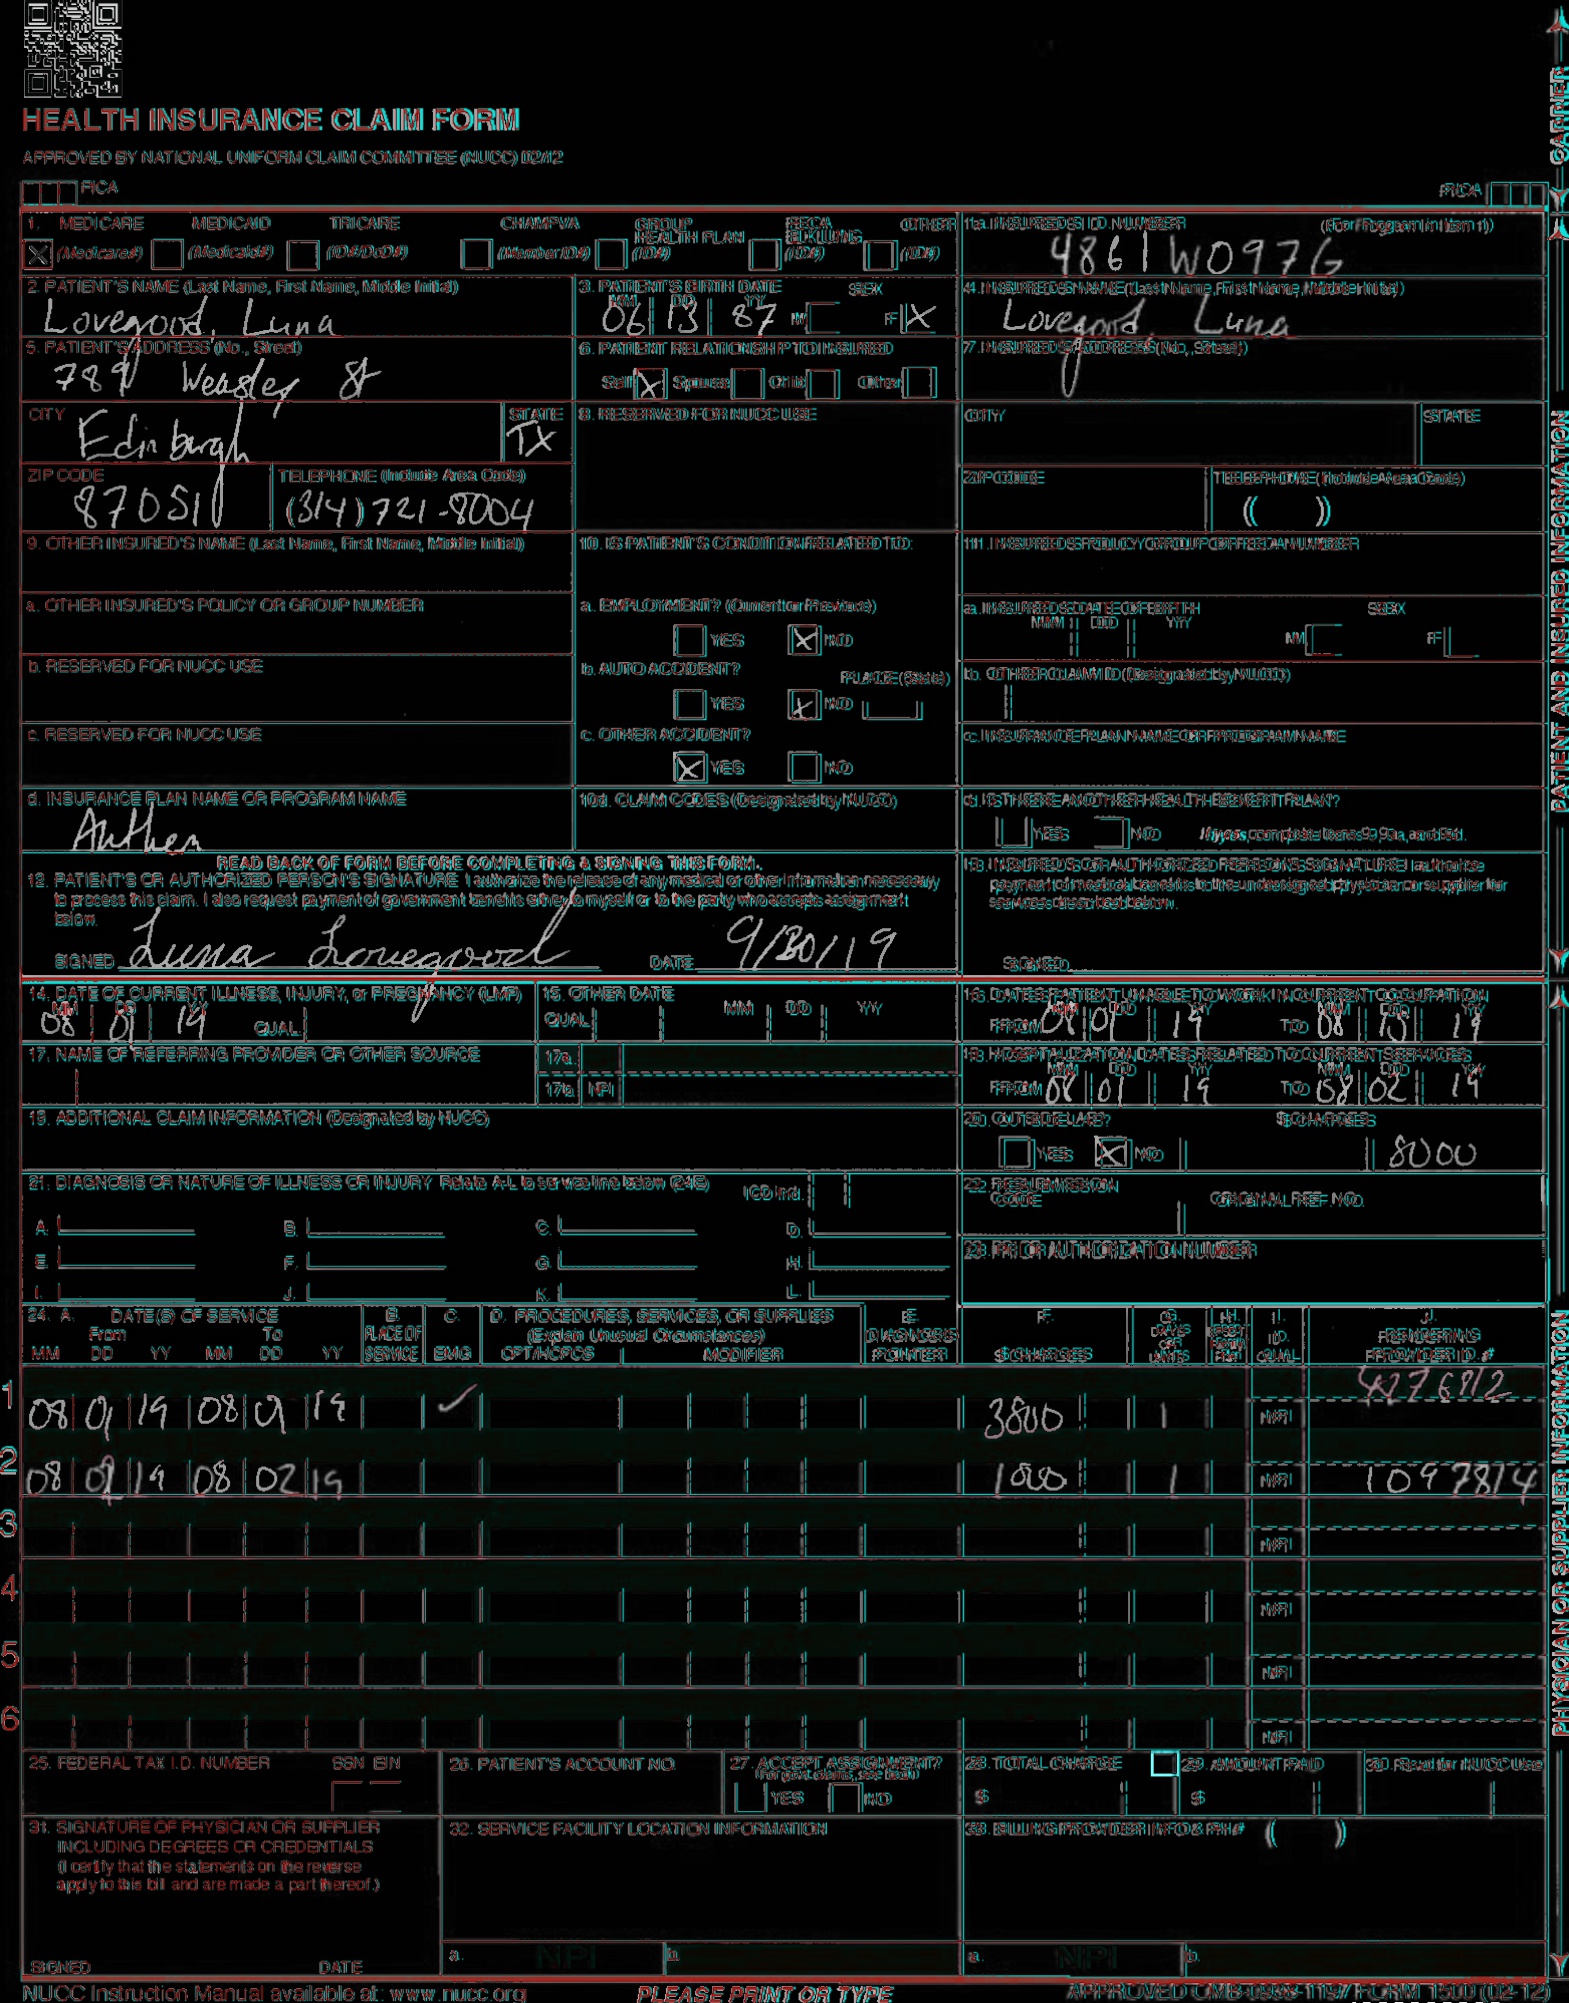 HEALTH INSURANCE CLAIM FORM
APPROVED BY NATIONAL UNIFORM CLAIM COMMITTEE (NUCC) 02/12
PICA
PICA
CARRIER
1. MEDICARE MEDICAID TRICARE CHAMPVA GROUP HEALTH PLAN FECA BLK LUNG OTHER
X (Medicare#) (Medicaid#) (ID#/DoD#) (Member ID#) (ID#) (ID#) (ID#)
1a. INSURED'S I.D. NUMBER (For Program in Item 1)
4861W097G
2. PATIENT'S NAME (Last Name, First Name, Middle Initial)
Lovegood, Luna
3. PATIENT'S BIRTH DATE SEX
MM DD YY
06 13 87 M F X
4. INSURED'S NAME (Last Name, First Name, Middle Initial)
Lovegood, Luna
5. PATIENT'S ADDRESS (No., Street)
789 Weasley St
6. PATIENT RELATIONSHIP TO INSURED
Self X Spouse Child Other
7. INSURED'S ADDRESS (No., Street)
CITY STATE
Edinburgh TX
8. RESERVED FOR NUCC USE
CITY STATE
ZIP CODE TELEPHONE (Include Area Code)
87051 (314) 721-8004
ZIP CODE TELEPHONE (Include Area Code)
( )
9. OTHER INSURED'S NAME (Last Name, First Name, Middle Initial)
10. IS PATIENT'S CONDITION RELATED TO:
11. INSURED'S POLICY GROUP OR FECA NUMBER
a. OTHER INSURED'S POLICY OR GROUP NUMBER
a. EMPLOYMENT? (Current or Previous)
YES X NO
a. INSURED'S DATE OF BIRTH SEX
MM DD YY M F
b. RESERVED FOR NUCC USE
b. AUTO ACCIDENT? PLACE (State)
YES X NO
b. OTHER CLAIM ID (Designated by NUCC)
c. RESERVED FOR NUCC USE
c. OTHER ACCIDENT?
X YES NO
c. INSURANCE PLAN NAME OR PROGRAM NAME
d. INSURANCE PLAN NAME OR PROGRAM NAME
Anthem
10d. CLAIM CODES (Designated by NUCC)
d. IS THERE ANOTHER HEALTH BENEFIT PLAN?
YES NO If yes, complete items 9, 9a, and 9d.
PATIENT AND INSURED INFORMATION
READ BACK OF FORM BEFORE COMPLETING & SIGNING THIS FORM.
12. PATIENT'S OR AUTHORIZED PERSON'S SIGNATURE I authorize the release of any medical or other information necessary
to process this claim. I also request payment of government benefits either to myself or to the party who accepts assignment
below.
SIGNED Luna Lovegood DATE 9/30/19
13. INSURED'S OR AUTHORIZED PERSON'S SIGNATURE I authorize
payment of medical benefits to the undersigned physician or supplier for
services described below.
SIGNED
14. DATE OF CURRENT ILLNESS, INJURY, or PREGNANCY (LMP)
MM DD YY
08 01 19 QUAL.
15. OTHER DATE
QUAL. MM DD YY
16. DATES PATIENT UNABLE TO WORK IN CURRENT OCCUPATION
MM DD YY MM DD YY
FROM 08 01 19 TO 08 15 19
17. NAME OF REFERRING PROVIDER OR OTHER SOURCE
17a.
17b. NPI
18. HOSPITALIZATION DATES RELATED TO CURRENT SERVICES
MM DD YY MM DD YY
FROM 08 01 19 TO 08 02 19
19. ADDITIONAL CLAIM INFORMATION (Designated by NUCC)
20. OUTSIDE LAB? $ CHARGES
YES X NO 8000
21. DIAGNOSIS OR NATURE OF ILLNESS OR INJURY Relate A-L to service line below (24E) ICD Ind.
A. B. C. D.
E. F. G. H.
I. J. K. L.
22. RESUBMISSION CODE ORIGINAL REF. NO.
23. PRIOR AUTHORIZATION NUMBER
24. A. DATE(S) OF SERVICE B. C. D. PROCEDURES, SERVICES, OR SUPPLIES E. F. G. H. I. J.
From To PLACE OF (Explain Unusual Circumstances) DIAGNOSIS DAYS OR ID. RENDERING
MM DD YY MM DD YY SERVICE EMG CPT/HCPCS MODIFIER POINTER $ CHARGES UNITS QUAL. PROVIDER ID. #
1 08 01 19 08 01 19 ✓ 3800 1 NPI
2 08 02 19 08 02 19 1000 1 NPI 1097814
3 NPI
4 NPI
5 NPI
6 NPI
PHYSICIAN OR SUPPLIER INFORMATION
25. FEDERAL TAX I.D. NUMBER SSN EIN
26. PATIENT'S ACCOUNT NO.
27. ACCEPT ASSIGNMENT?
(For govt. claims, see back)
YES NO
28. TOTAL CHARGE
$
29. AMOUNT PAID
$
30. Rsvd for NUCC Use
31. SIGNATURE OF PHYSICIAN OR SUPPLIER
INCLUDING DEGREES OR CREDENTIALS
(I certify that the statements on the reverse
apply to this bill and are made a part thereof.)
SIGNED DATE
32. SERVICE FACILITY LOCATION INFORMATION
a. NPI b.
33. BILLING PROVIDER INFO & PH # ( )
a. NPI b.
NUCC Instruction Manual available at: www.nucc.org
PLEASE PRINT OR TYPE
APPROVED OMB-0938-1197 FORM 1500 (02-12)